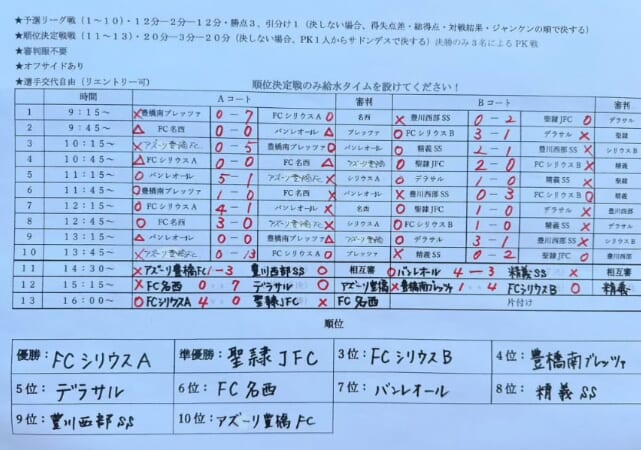 ★予選リーグ戦（１～１０）・１２分―２分―１２分・勝点３、引分け１（決しない場合、得失点差・総得点・対戦結果・ジャンケンの順で決する）
★順位決定戦戦（１１～１３）・２０分―３分―２０分（決しない場合、PK１人からサドンデスで決する）決勝のみ３名によるPK戦
★審判服不要
★オフサイドあり
★選手交代自由（リエントリー可）
順位決定戦のみ給水タイムを設けてください！
時間 Aコート 審判 Bコート 審判
1 9：15～ ×豊橋南プレッツァ 0－7 FCシリウスA○ 名西 ×豊川西部SS 0－2 聖隷JFC○ デラサル
2 9：45～ △FC名西 0－0 バンレオール△ プレッツァ ○FCシリウスB 3－1 デラサル× 聖隷
3 10：15～ ×アズーリ豊橋FC 0－5 豊橋南プレッツァ○ バンレオール ○精義SS 2－1 豊川西部SS× シリウスB
4 10：45～ △FCシリウスA 0－0 FC名西△ アズーリ豊橋 ○聖隷JFC 2－0 FCシリウスB× 精義
5 11：15～ ○バンレオール 5－1 アズーリ豊橋FC× シリウスA ○デラサル 1－0 精義SS× 豊川西部
6 11：45～ ×豊橋南プレッツァ 1－0 FC名西 バンレオール ×豊川西部SS 0－3 FCシリウスB○ デラサル
7 12：15～ ○FCシリウスA 4－1 バンレオール× 名西 ○聖隷JFC 1－0 デラサル× 豊川西部
8 12：45～ ○FC名西 3－0 アズーリ豊橋FC× シリウスA ○FCシリウスB 1－0 精義SS× 聖隷
9 13：15～ △バンレオール 0－0 豊橋南プレッツァ△ アズーリ豊橋 ○デラサル 3－1 豊川西部SS× シリウスB
10 13：45～ ×アズーリ豊橋FC 0－13 FCシリウスA○ プレッツァ ×精義SS 0－2 聖隷JFC○ 豊川西部
11 14：30～ ×アズーリ豊橋FC 1－3 豊川西部SS ○ 相互審 ○バンレオール 4－3 精義SS × 相互審
12 15：15～ ×FC名西 0 7 デラサル ○ アズーリ豊橋 ×豊橋南プレッツァ 1 4 FCシリウスB ○ 精義
13 16：00～ ○FCシリウスA 4 0 聖隷JFC × FC名西 片付け
順位
優勝：FCシリウスA 準優勝：聖隷JFC 3位：FCシリウスB 4位：豊橋南プレッツァ
5位：デラサル 6位：FC名西 7位：バンレオール 8位：精義SS
9位：豊川西部SS 10位：アズーリ豊橋FC